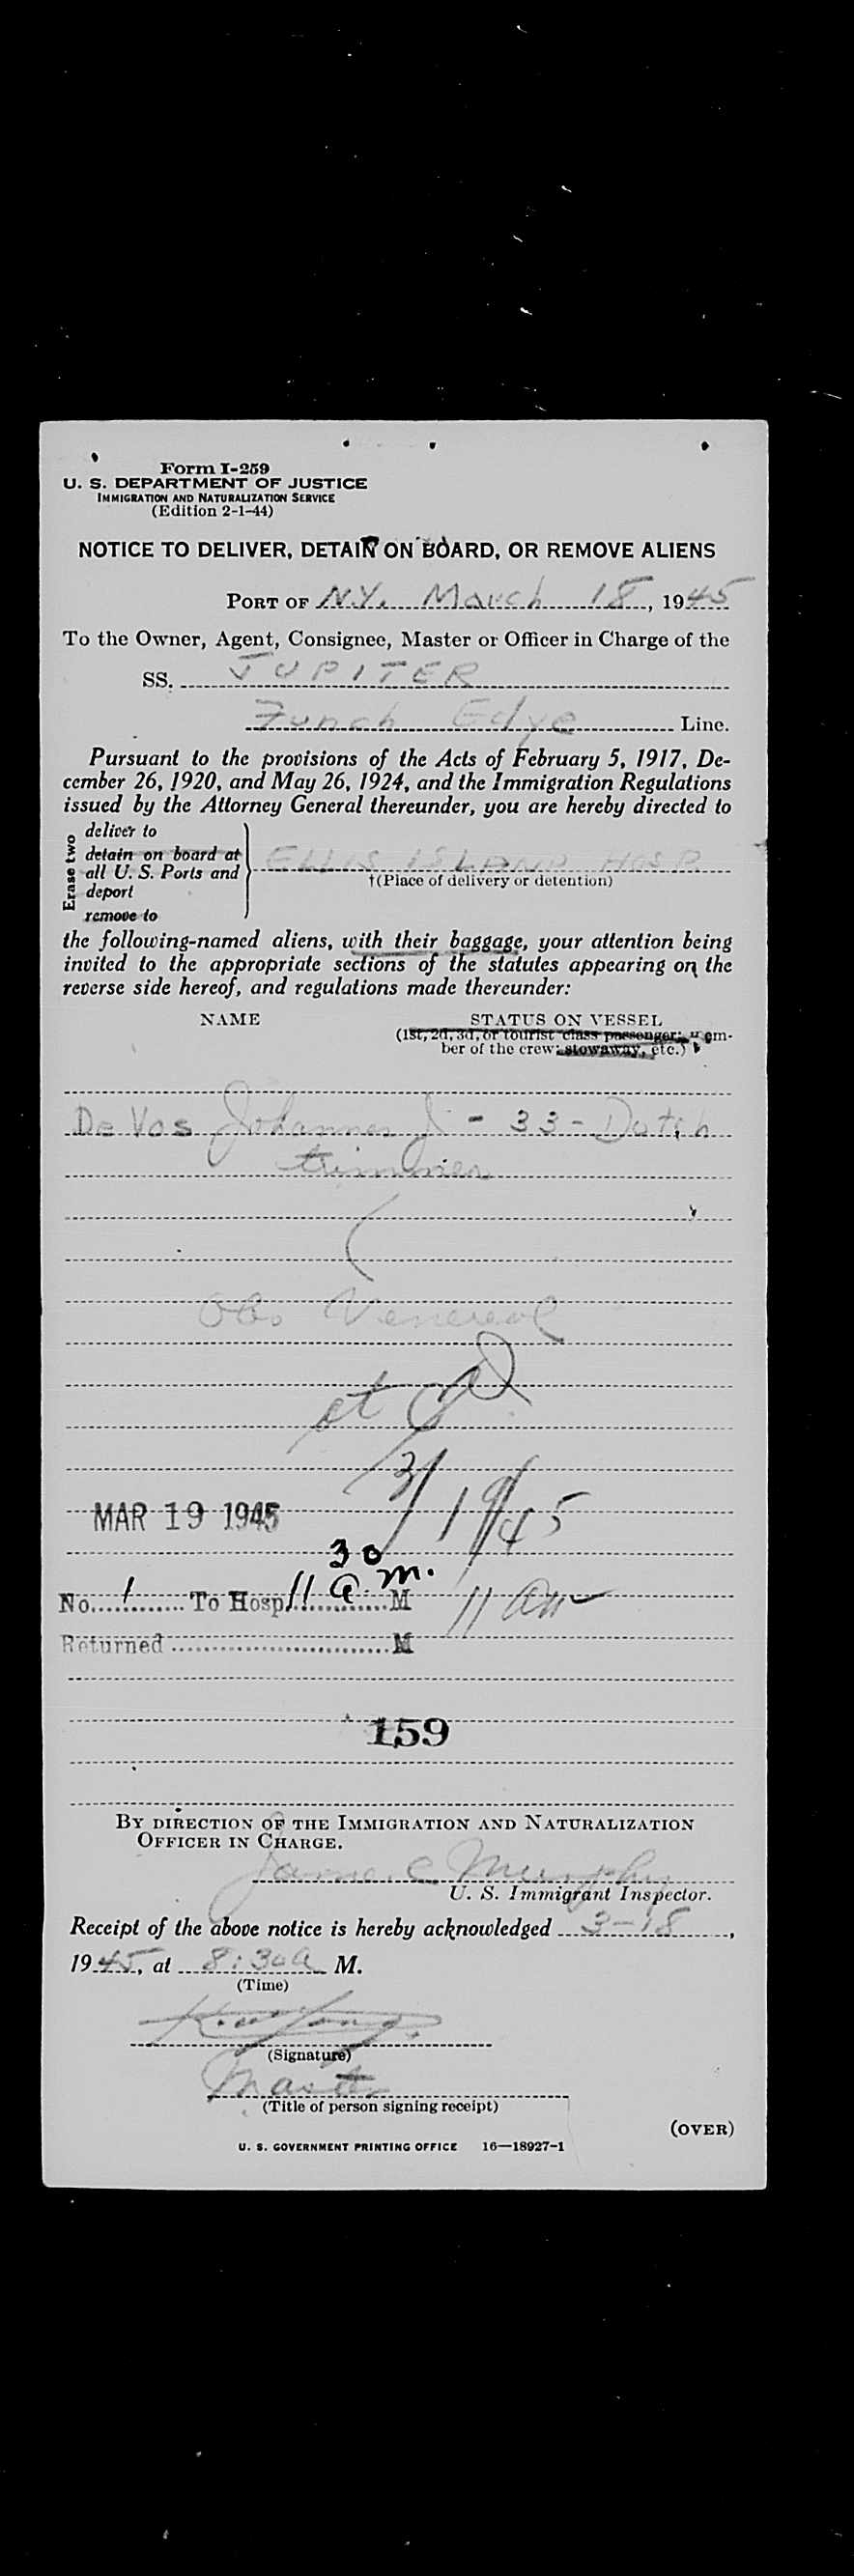 Form I-259
U. S. DEPARTMENT OF JUSTICE
IMMIGRATION AND NATURALIZATION SERVICE
(Edition 2-1-44)
NOTICE TO DELIVER, DETAIN ON BOARD, OR REMOVE ALIENS
PORT OF N.Y. March 18, 1945
To the Owner, Agent, Consignee, Master or Officer in Charge of the
SS. JUPITER
Funch Edye Line.
Pursuant to the provisions of the Acts of February 5, 1917, De-
cember 26, 1920, and May 26, 1924, and the Immigration Regulations
issued by the Attorney General thereunder, you are hereby directed to
Erase two
deliver to
detain on board at
all U. S. Ports and
deport
remove to
ELLIS ISLAND HOSP
†(Place of delivery or detention)
the following-named aliens, with their baggage, your attention being
invited to the appropriate sections of the statutes appearing on the
reverse side hereof, and regulations made thereunder:
NAME STATUS ON VESSEL
(1st, 2d, 3d, or tourist class passenger; mem-
ber of the crew; stowaway, etc.)
De Vos Johannes J - 33 - Dutch
trimmer
Obs Venereal
3/19/45
MAR 19 1945
30
No. 1 To Hosp. 11 a.m. M 11 am
Returned M
159
BY DIRECTION OF THE IMMIGRATION AND NATURALIZATION
OFFICER IN CHARGE.
James C Murphy
U. S. Immigrant Inspector.
Receipt of the above notice is hereby acknowledged 3-18,
1945, at 8:30 a M.
(Time)
(Signature)
Master
(Title of person signing receipt)
(OVER)
U. S. GOVERNMENT PRINTING OFFICE 16—18927-1